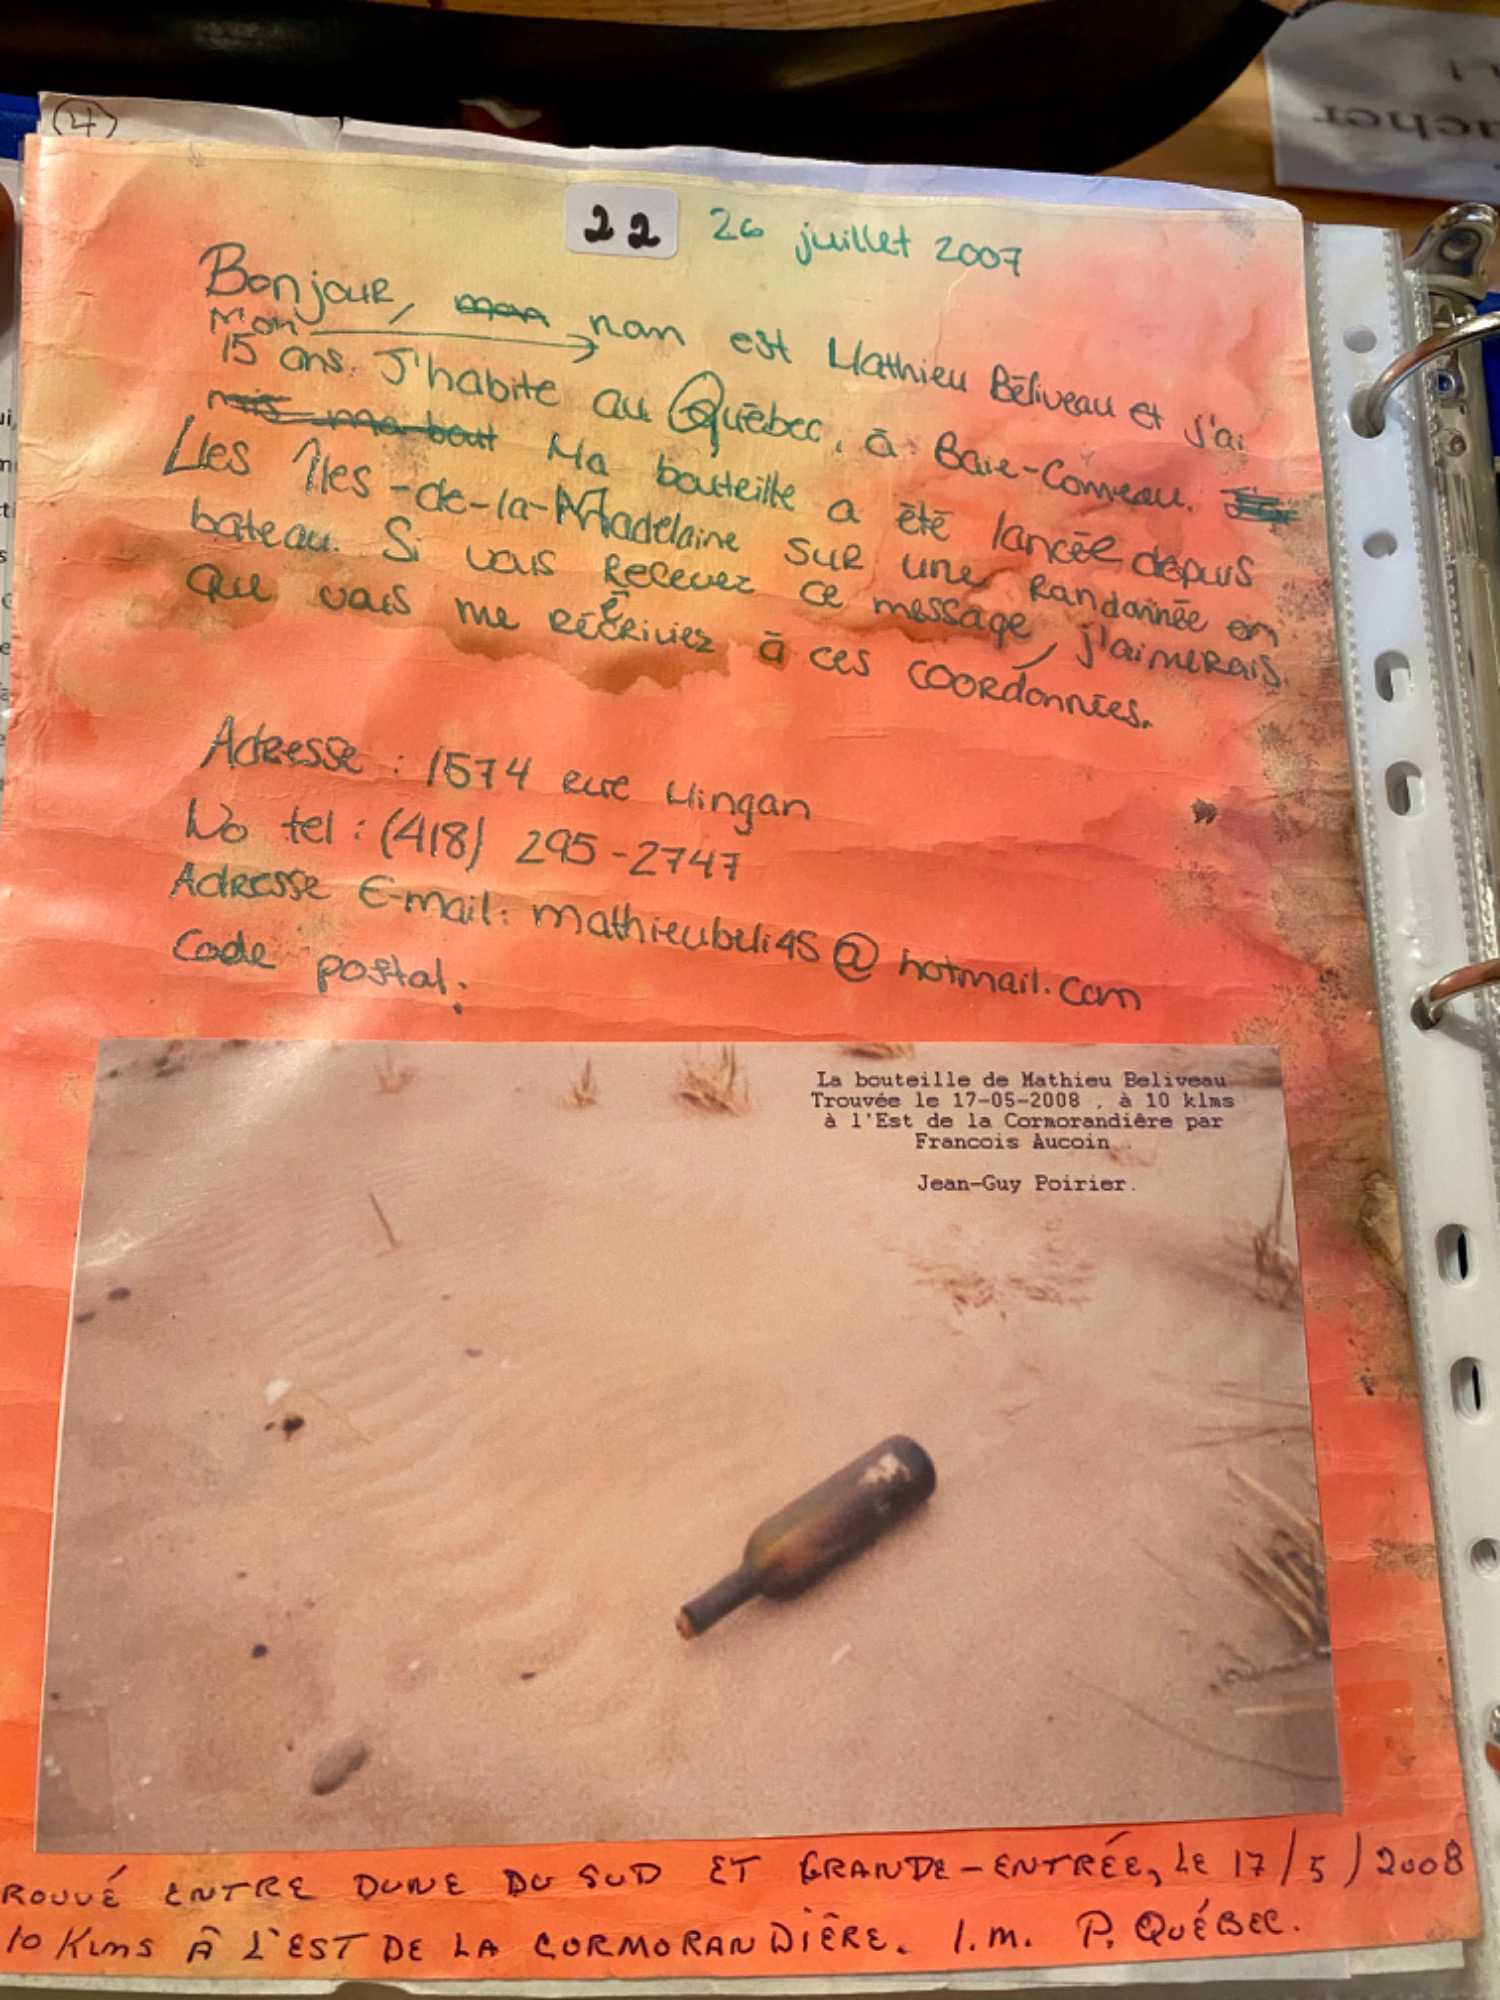 4
22 26 juillet 2007
Bonjour, mon nom est Mathieu Béliveau et j'ai
Mon
15 ans. J'habite au Québec, à Baie-Comeau.
mais ma bout Ma bouteille a été lancée depuis
Les Îles-de-la-Madelaine sur une randonnée en
bateau. Si vous recevez ce message, j'aimerais
que vous me réécriviez à ces coordonnées.
Adresse : 1574 rue Mingan
No tel : (418) 295-2747
Adresse E-mail: mathieubeli45@hotmail.com
Code postal:
La bouteille de Mathieu Beliveau
Trouvée le 17-05-2008 , à 10 klms
à l'Est de la Cormorandière par
Francois Aucoin.
Jean-Guy Poirier.
ROUVÉ ENTRE DUNE DU SUD ET GRANDE-ENTRÉE, LE 17/5/2008
10 KLMS À L'EST DE LA CORMORANDIÈRE. I.M. P. QUÉBEC.